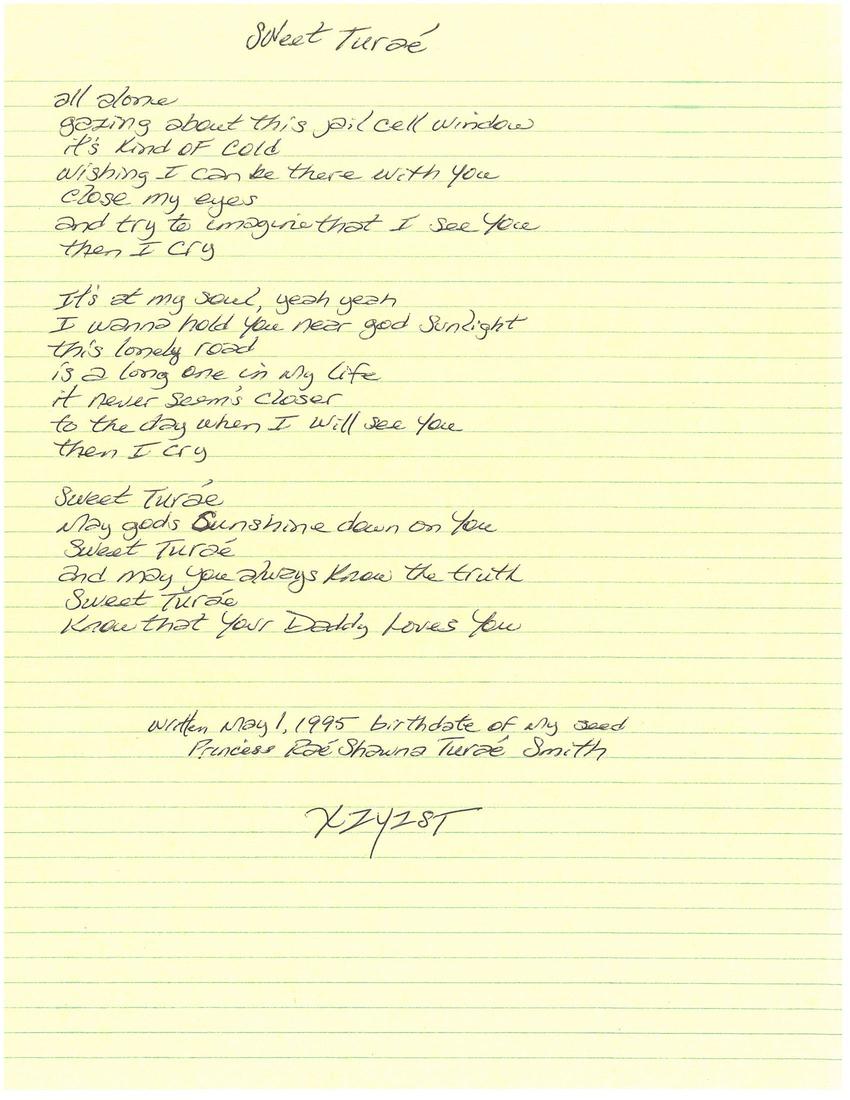 Sweet Turaé
all alone
gazing about this jail cell window
it's kind of cold
wishing I can be there with you
close my eyes
and try to imagine that I see you
then I cry
It's at my soul, yeah yeah
I wanna hold you near god sunlight
this lonely road
is a long one in my life
it never seem's closer
to the day when I will see you
then I cry
Sweet Turaé
May gods Sunshine down on you
Sweet Turaé
and may you always know the truth
Sweet Turaé
know that your Daddy Loves you
written May 1, 1995 birthdate of my seed
Princess Raé Shawna Turaé Smith
XZYZST